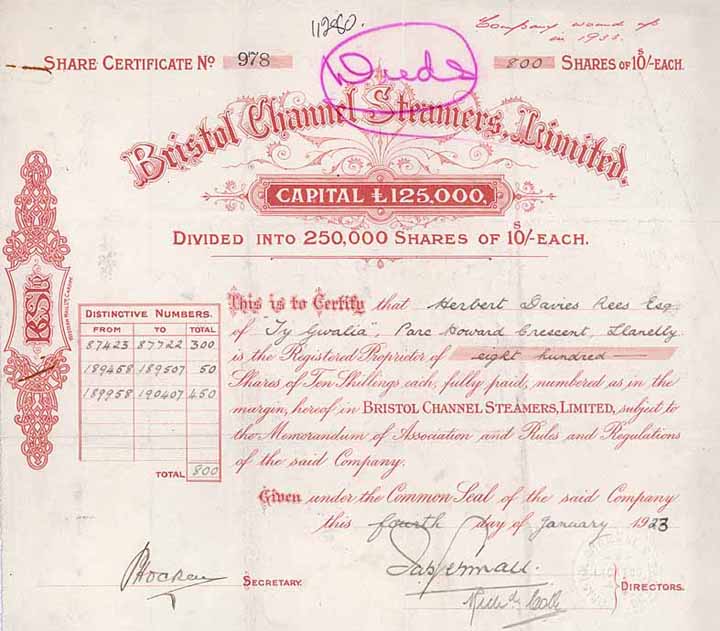 11280.
Company wound up
in 1933.
SHARE CERTIFICATE No 978
800 SHARES OF 10/S-EACH.
Deeds
Bristol Channel Steamers, Limited.
CAPITAL £125,000,
DIVIDED INTO 250,000 SHARES OF 10/S-EACH.
DISTINCTIVE NUMBERS.
FROM TO TOTAL
87423 87722 300
189458 189507 50
189958 190407 450
TOTAL 800
B.S.L.
This is to Certify that Herbert Davies Rees Esq
of "Ty Gwalia", Parc Howard Crescent, Llanelly
is the Registered Proprietor of eight hundred
Shares of Ten Shillings each, fully paid, numbered as in the
margin, hereof in BRISTOL CHANNEL STEAMERS, LIMITED, subject to
the Memorandum of Association and Rules and Regulations
of the said Company.
Given under the Common Seal of the said Company
this fourth day of January 1923
SECRETARY.
DIRECTORS.